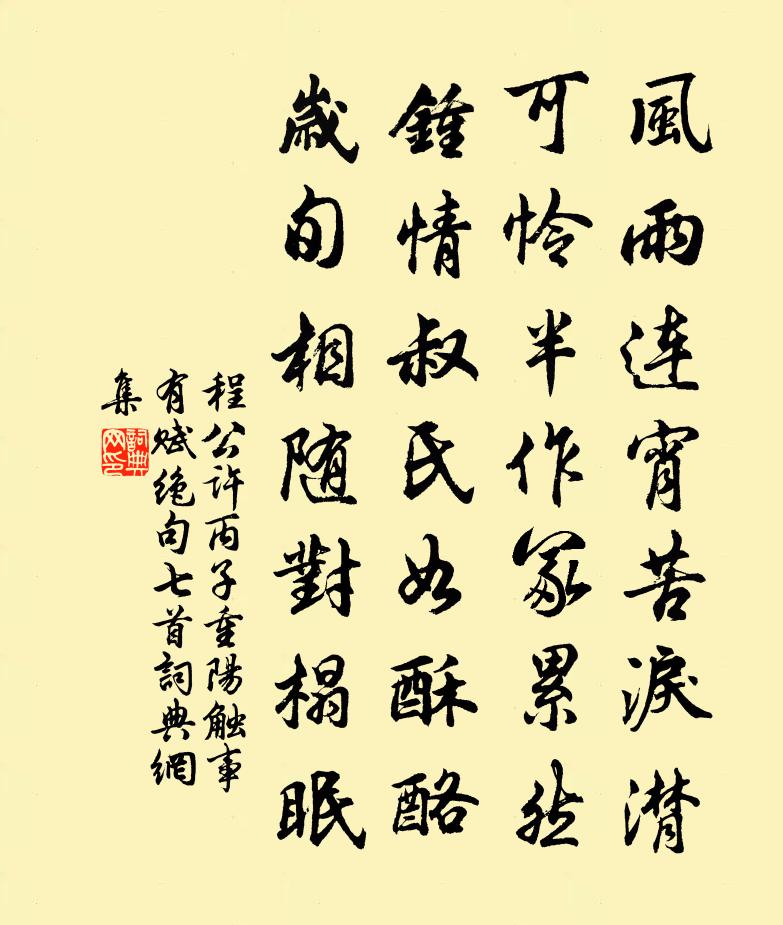 風雨連宵苦淚潸
可怜半作冢累然
鍾情叔氏如酥酪
歲旬相随對榻眠
程公許丙子重陽触事
有賦絶句七首詞典網
集
詞典网印